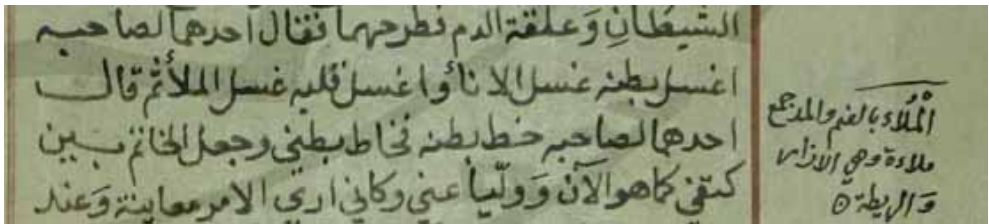 الشيطان وعلقة الدم فطرحهما فقال احدهما لصاحبه
اغسل بطنه غسل الانآء واغسل قلبه غسل الملأ ثم قال
احدهما لصاحبه خط بطنه فخاط بطني وجعل الخاتم بين
كتفي كما هو الآن وولّيا عني وكاني اري الامر معاينة وعند
الْمُلاء بالضم والمد جمع
ملاءة وهي الازار
والريطة ه